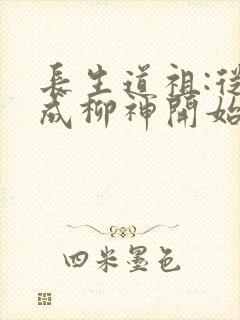 長生道祖:從
成柳神開始
四米墨色